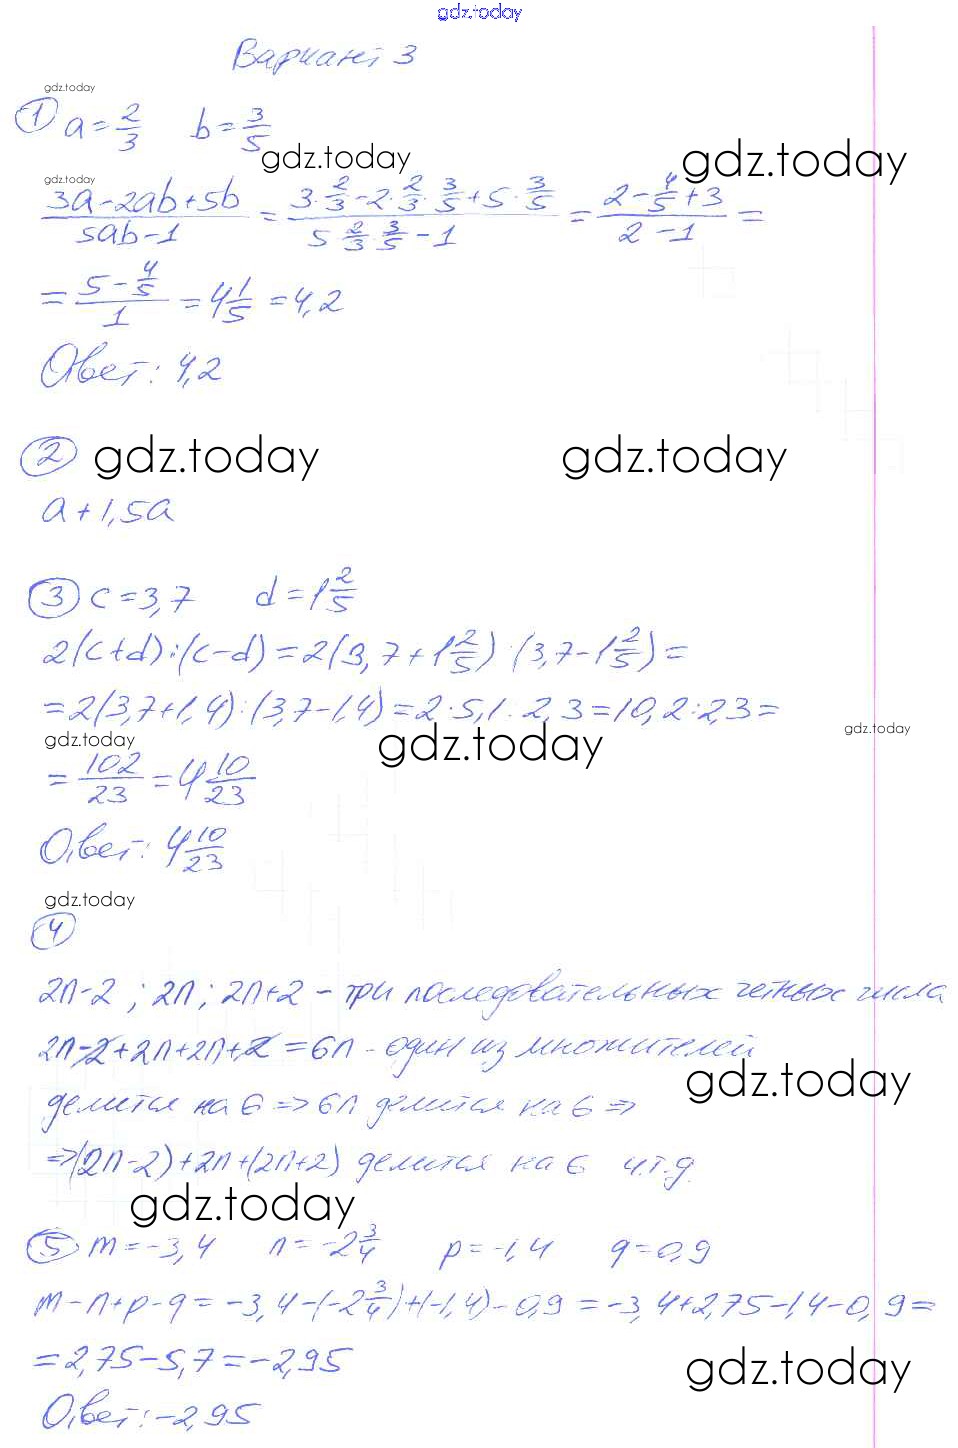 gdz.today
Вариант 3
gdz.today
① a = 2/3 b = 3/5
gdz.today gdz.today
gdz.today
(3a - 2ab + 5b)/(5ab - 1) = (3 · 2/3 - 2 · 2/3 · 3/5 + 5 · 3/5)/(5 2/3 · 3/5 - 1) = (2 - 4/5 + 3)/(2 - 1) =
= (5 - 4/5)/1 = 4 1/5 = 4,2
Ответ: 4,2
② gdz.today gdz.today
a + 1,5a
③ c = 3,7 d = 1 2/5
2(c+d) : (c-d) = 2(3,7 + 1 2/5) : (3,7 - 1 2/5) =
= 2(3,7+1,4) : (3,7-1,4) = 2 · 5,1 : 2,3 = 10,2 : 2,3 =
gdz.today gdz.today gdz.today
= 102/23 = 4 10/23
Ответ: 4 10/23
gdz.today
④
2n-2 ; 2n ; 2n+2 - три последовательных четных числа
2n-2+2n+2n+2 = 6n - один из множителей
gdz.today
делится на 6 => 6n делится на 6 =>
=> (2n-2)+2n+(2n+2) делится на 6 ч.т.д.
gdz.today
⑤ m = -3,4 n = -2 3/4 p = -1,4 q = 0,9
m - n + p - q = -3,4 - (-2 3/4) + (-1,4) - 0,9 = -3,4 + 2,75 - 1,4 - 0,9 =
= 2,75 - 5,7 = -2,95
gdz.today
Ответ: -2,95